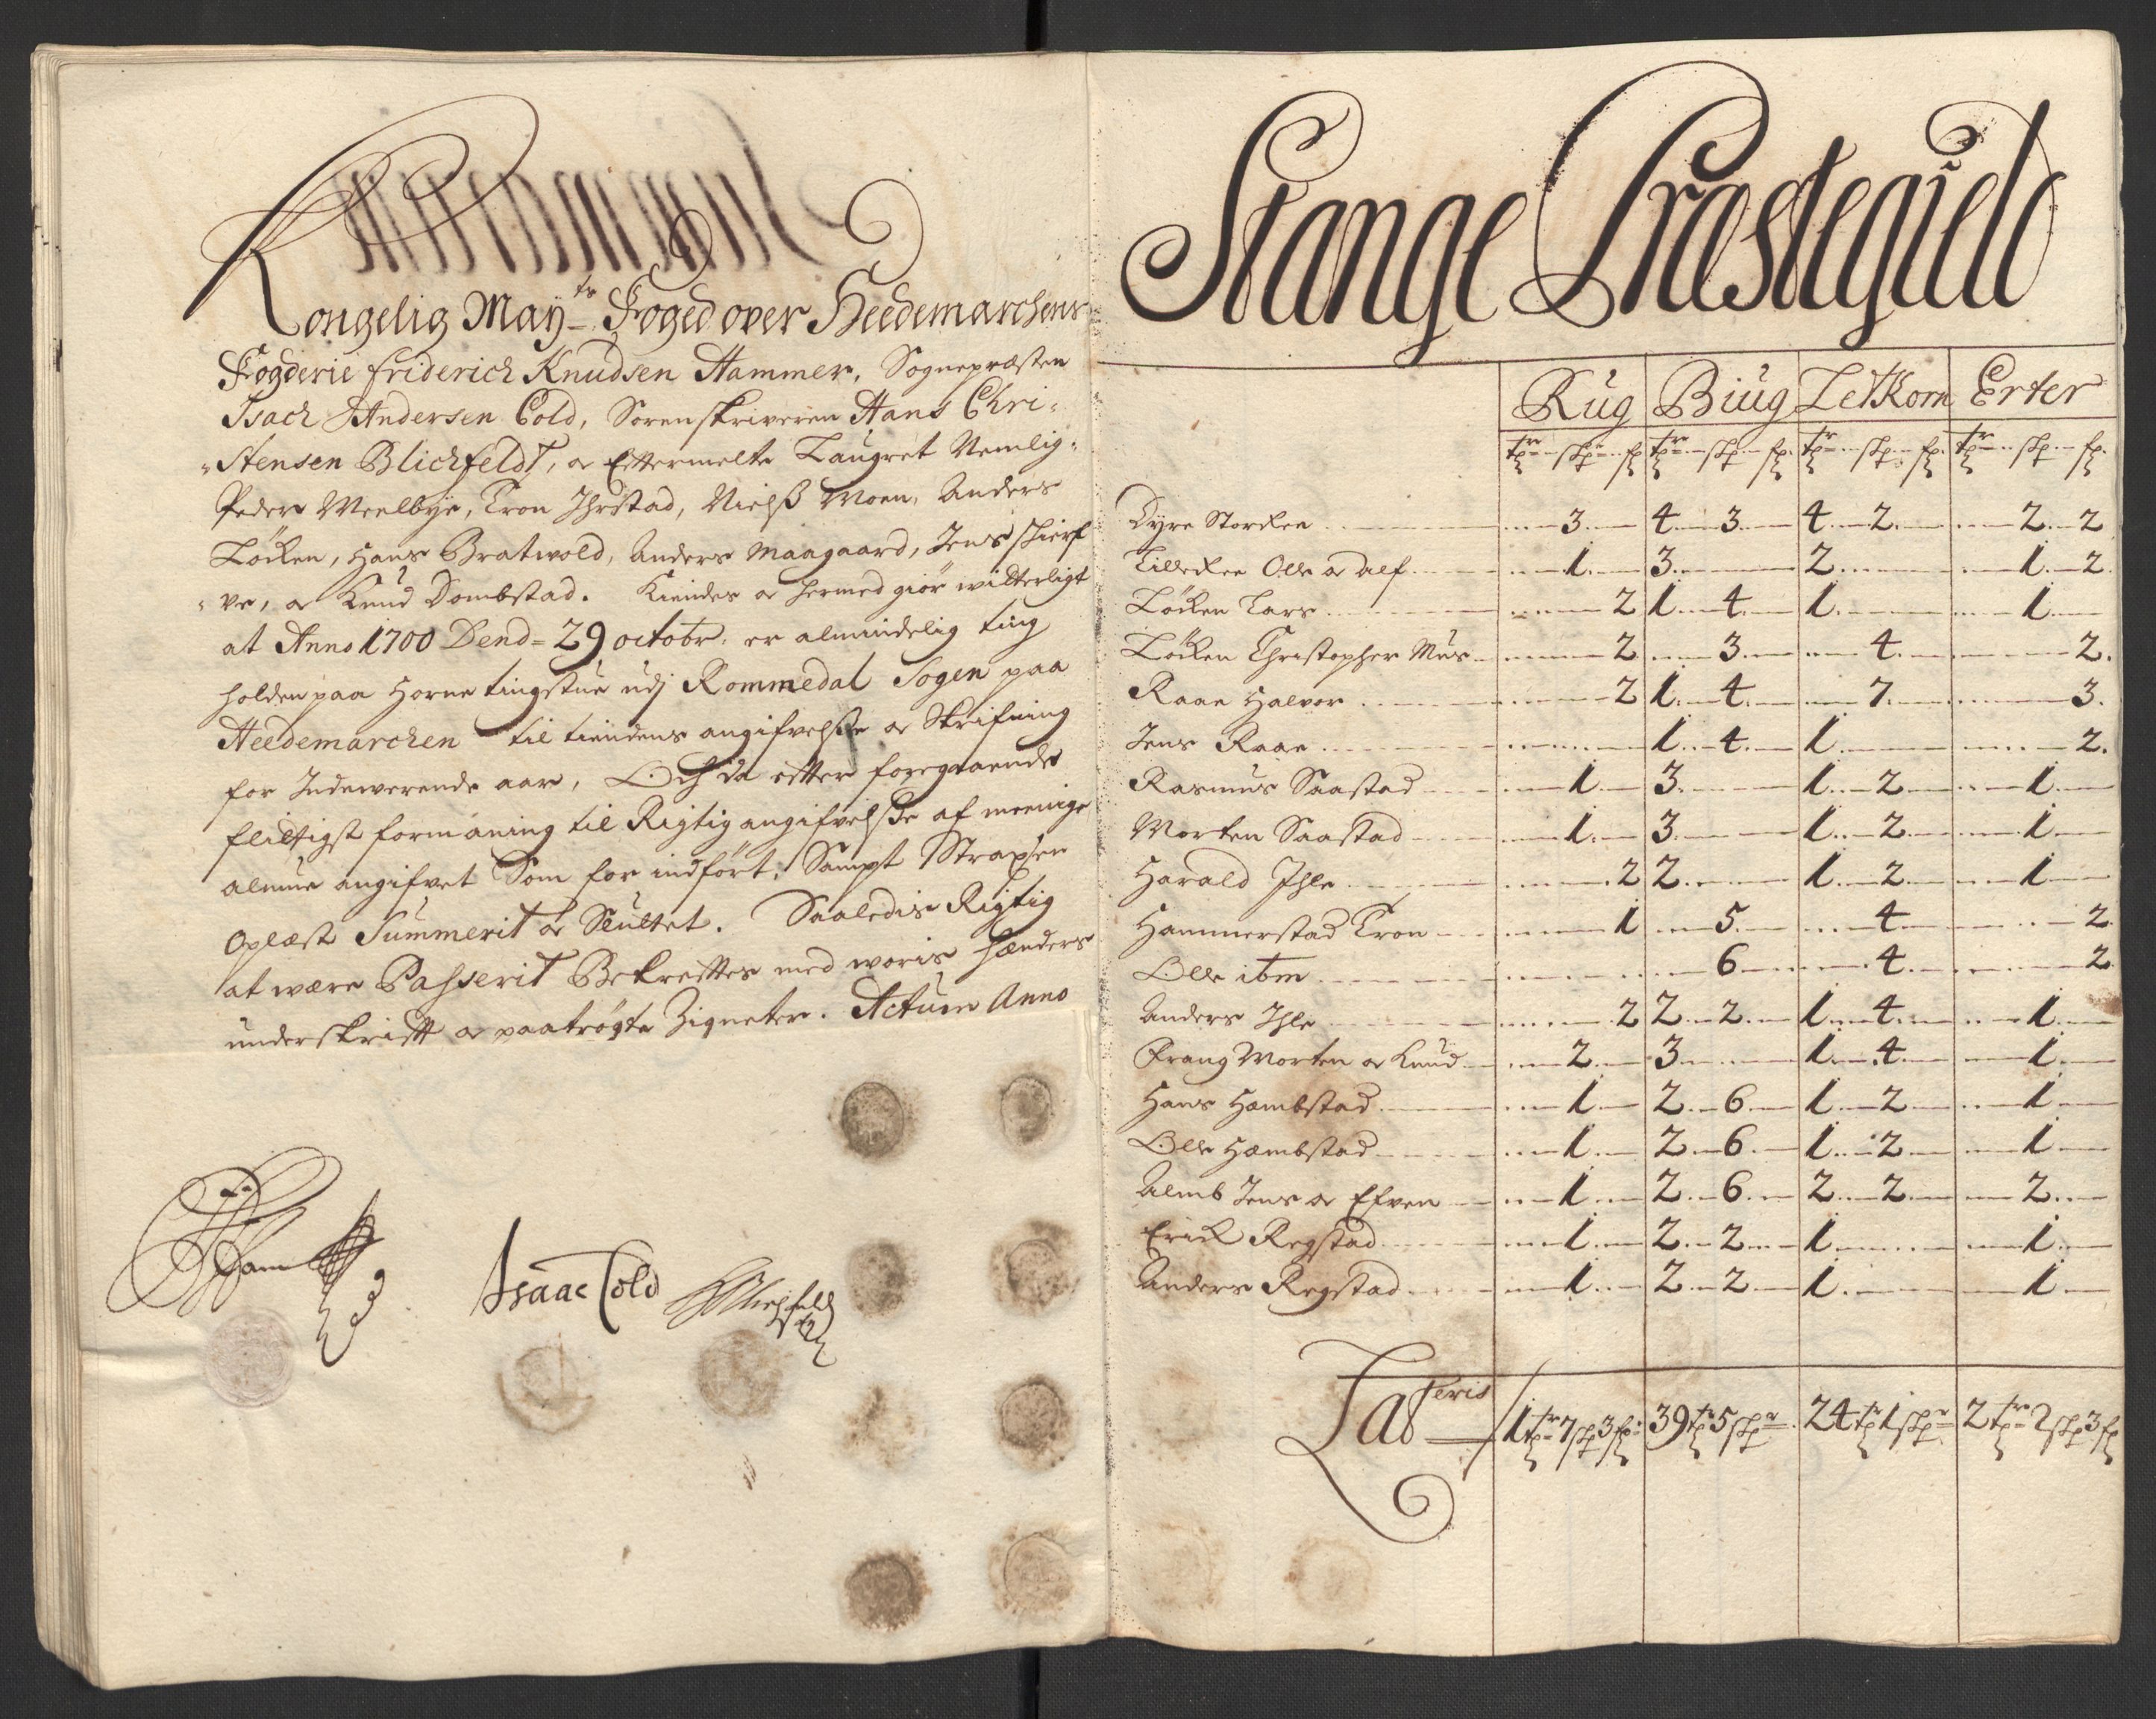 Kongelig May.ts Foged over Heedemarchens
Fogderie Friderich Knudsen Hammer, Sognepræsten
Isach Andersen Cold, Sorenskriveren Hans Chri-
stensen Blichfeldt, og Eftermelte Laugret Nemlig
Peder Meelbye, Tron Ihrstad, Nielß Moen, Anders
Löcken, Hans Bratwold, Anders Maagaard, Jens Skierf
ve, og Knud Dombstad. Kiendes og hermed giör witterligt
at Anno 1700 Dend 29 octobr. er almindelig ting
holden paa Horne tingstue udj Rommedal Sogen paa
Heedemarchen til tiendens angifvelße og Skrifning
for Indewerende aar, Och da efter foregaaende
flittigst formaning til Rigtig angifvelße af meenige
almue angifvet Som for indfört, Sampt Straxen
Oplæst Summerit og Sluttet. Saaledis Rigtig
at være Passerit Bekreftes med woris hænders
underskrift og paatrögte Zigneter. Actum Anno
Isaac Cold
HBlichfeldt
Stange Præstegield
Rug Biug Letkorn Erter
tr skp fr tr skp fr tr skp fr tr skp fr
Dyre Storcken 3 4 3 4 2 2 2
Lillecken Olle og Alf 1 3 2 1 2
Löcken Lars 2 1 4 1 1
Löcken Christopher Mus 2 3 4 2
Raae Halvor 2 1 4 7 3
Jens Raae 1 4 1 2
Rasmus Saastad 1 3 1 2 1
Morten Saastad 1 3 1 2 1
Harald Ihle 2 2 1 2 1
Hammerstad Tron 1 5 4 2
Olle ibm 6 4 2
Anders Ihle 2 2 2 1 4 1
Frang Morten og Knud 2 3 1 4 1
Hans Hæmbstad 1 2 6 1 2 1
Olle Hæmbstad 1 2 6 1 2 1
Almb Jens og Efven 1 2 6 2 2 2
Erick Regstad 1 2 2 1 1
Anders Regstad 1 2 2 1 1
Lateris 1 tr 7 skp 3 fr 39 tr 5 skp 24 tr 1 skp 2 tr 2 skp 3 fr